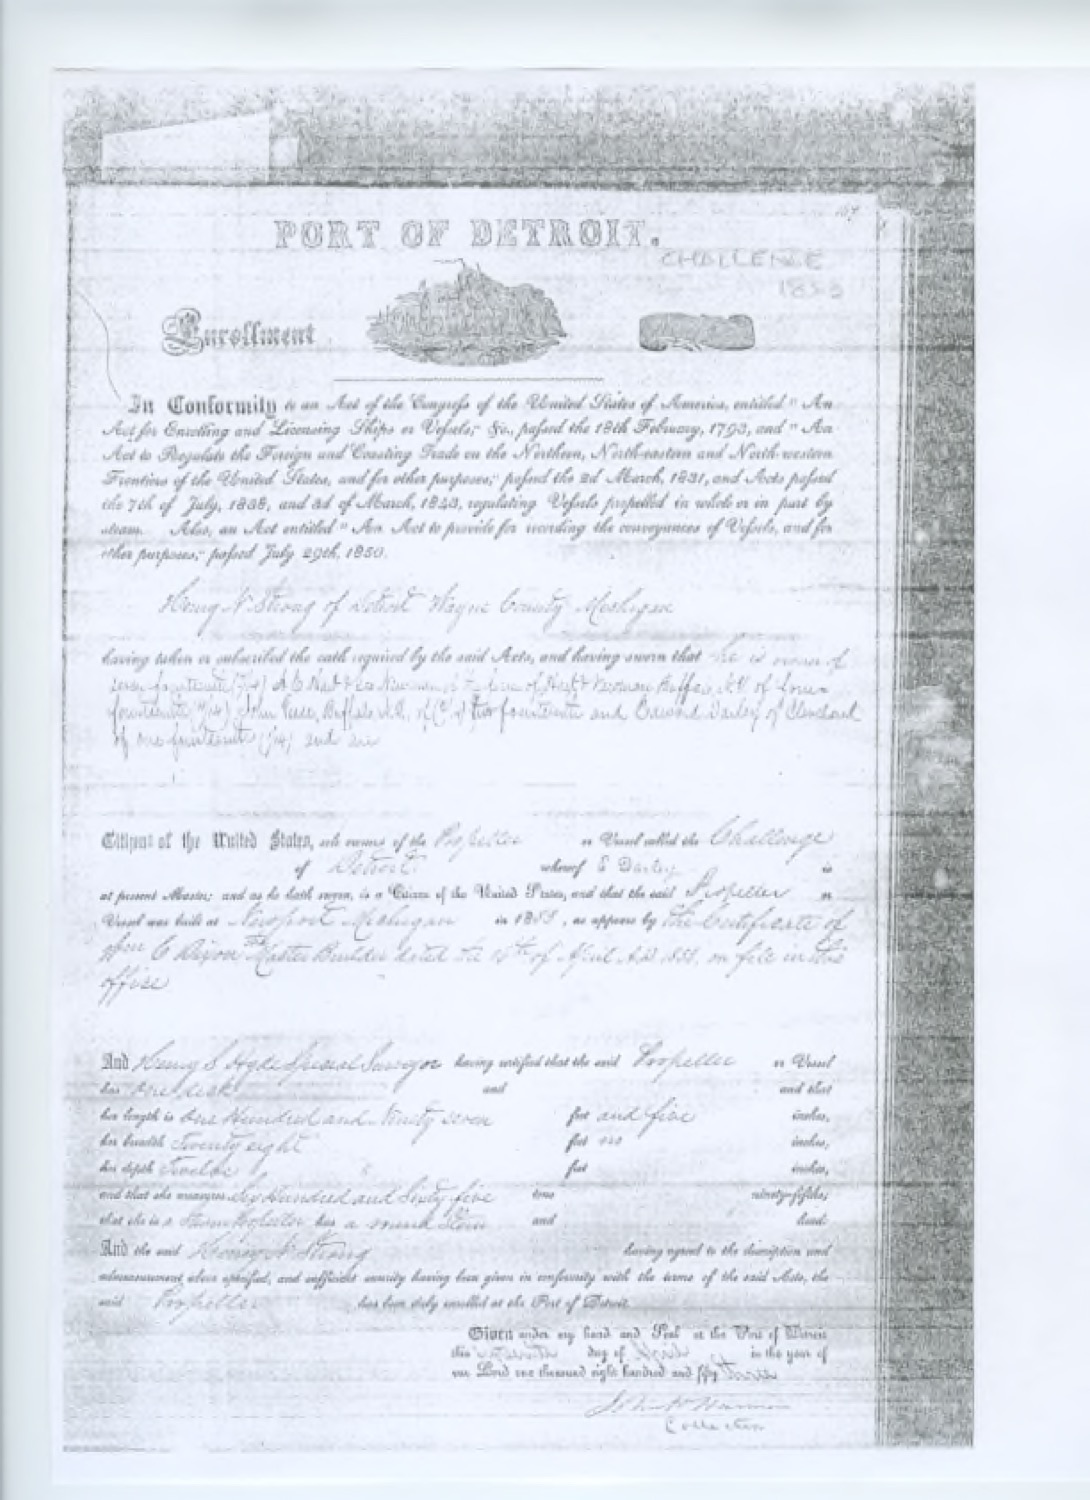 PORT OF DETROIT.
CHALLENGE
Enrollment
In Conformity to an Act of the Congress of the United States of America, entitled "An
Act for Enrolling and Licensing Ships or Vessels," &c., passed the 18th February, 1793, and "An
Act to Regulate the Foreign and Coasting Trade on the Northern, North-eastern and North-western
Frontiers of the United States, and for other purposes;" passed the 2d March, 1831, and Acts passed
the 7th of July, 1838, and 3d of March, 1843, regulating Vessels propelled in whole or in part by
steam. Also, an Act entitled "An Act to provide for recording the conveyances of Vessels, and for
other purposes," passed July 29th, 1850.
Henry N Strong of Detroit Wayne County Michigan
having taken or subscribed the oath required by the said Acts, and having sworn that he is owner of
Buffalo, N.Y. of four
fourteenths John Buffalo N.Y. two fourteenths and Edward Darley of Cleveland
of one fourteenth (1/14) and are
Citizens of the United States, sole owners of the Propeller or Vessel called the Challenge
of Detroit whereof E Darley is
at present Master; and as he hath sworn, is a Citizen of the United States, and that the said Propeller or
Vessel was built at Newport Michigan in , as appears by the Certificate of
Master Builder dated the of April on file in this
office
And Henry S Hyde Special Surveyor having certified that the said Propeller or Vessel
has one deck and and that
her length is One Hundred and Ninety seven feet and five inches,
her breadth Twenty eight feet no inches,
her depth Twelve feet inches,
and that she measures Six Hundred and Sixty five tons ninety-fifths;
that she is a Steam Propeller has a round Stern and head:
And the said Henry N Strong having agreed to the description and
admeasurement above specified, and sufficient security having been given in conformity with the terms of the said Acts, the
said Propeller has been duly enrolled at the Port of Detroit
Given under my hand and Seal at the Port of Detroit
this day of April in the year of
our Lord one thousand eight hundred and fifty three
Collector